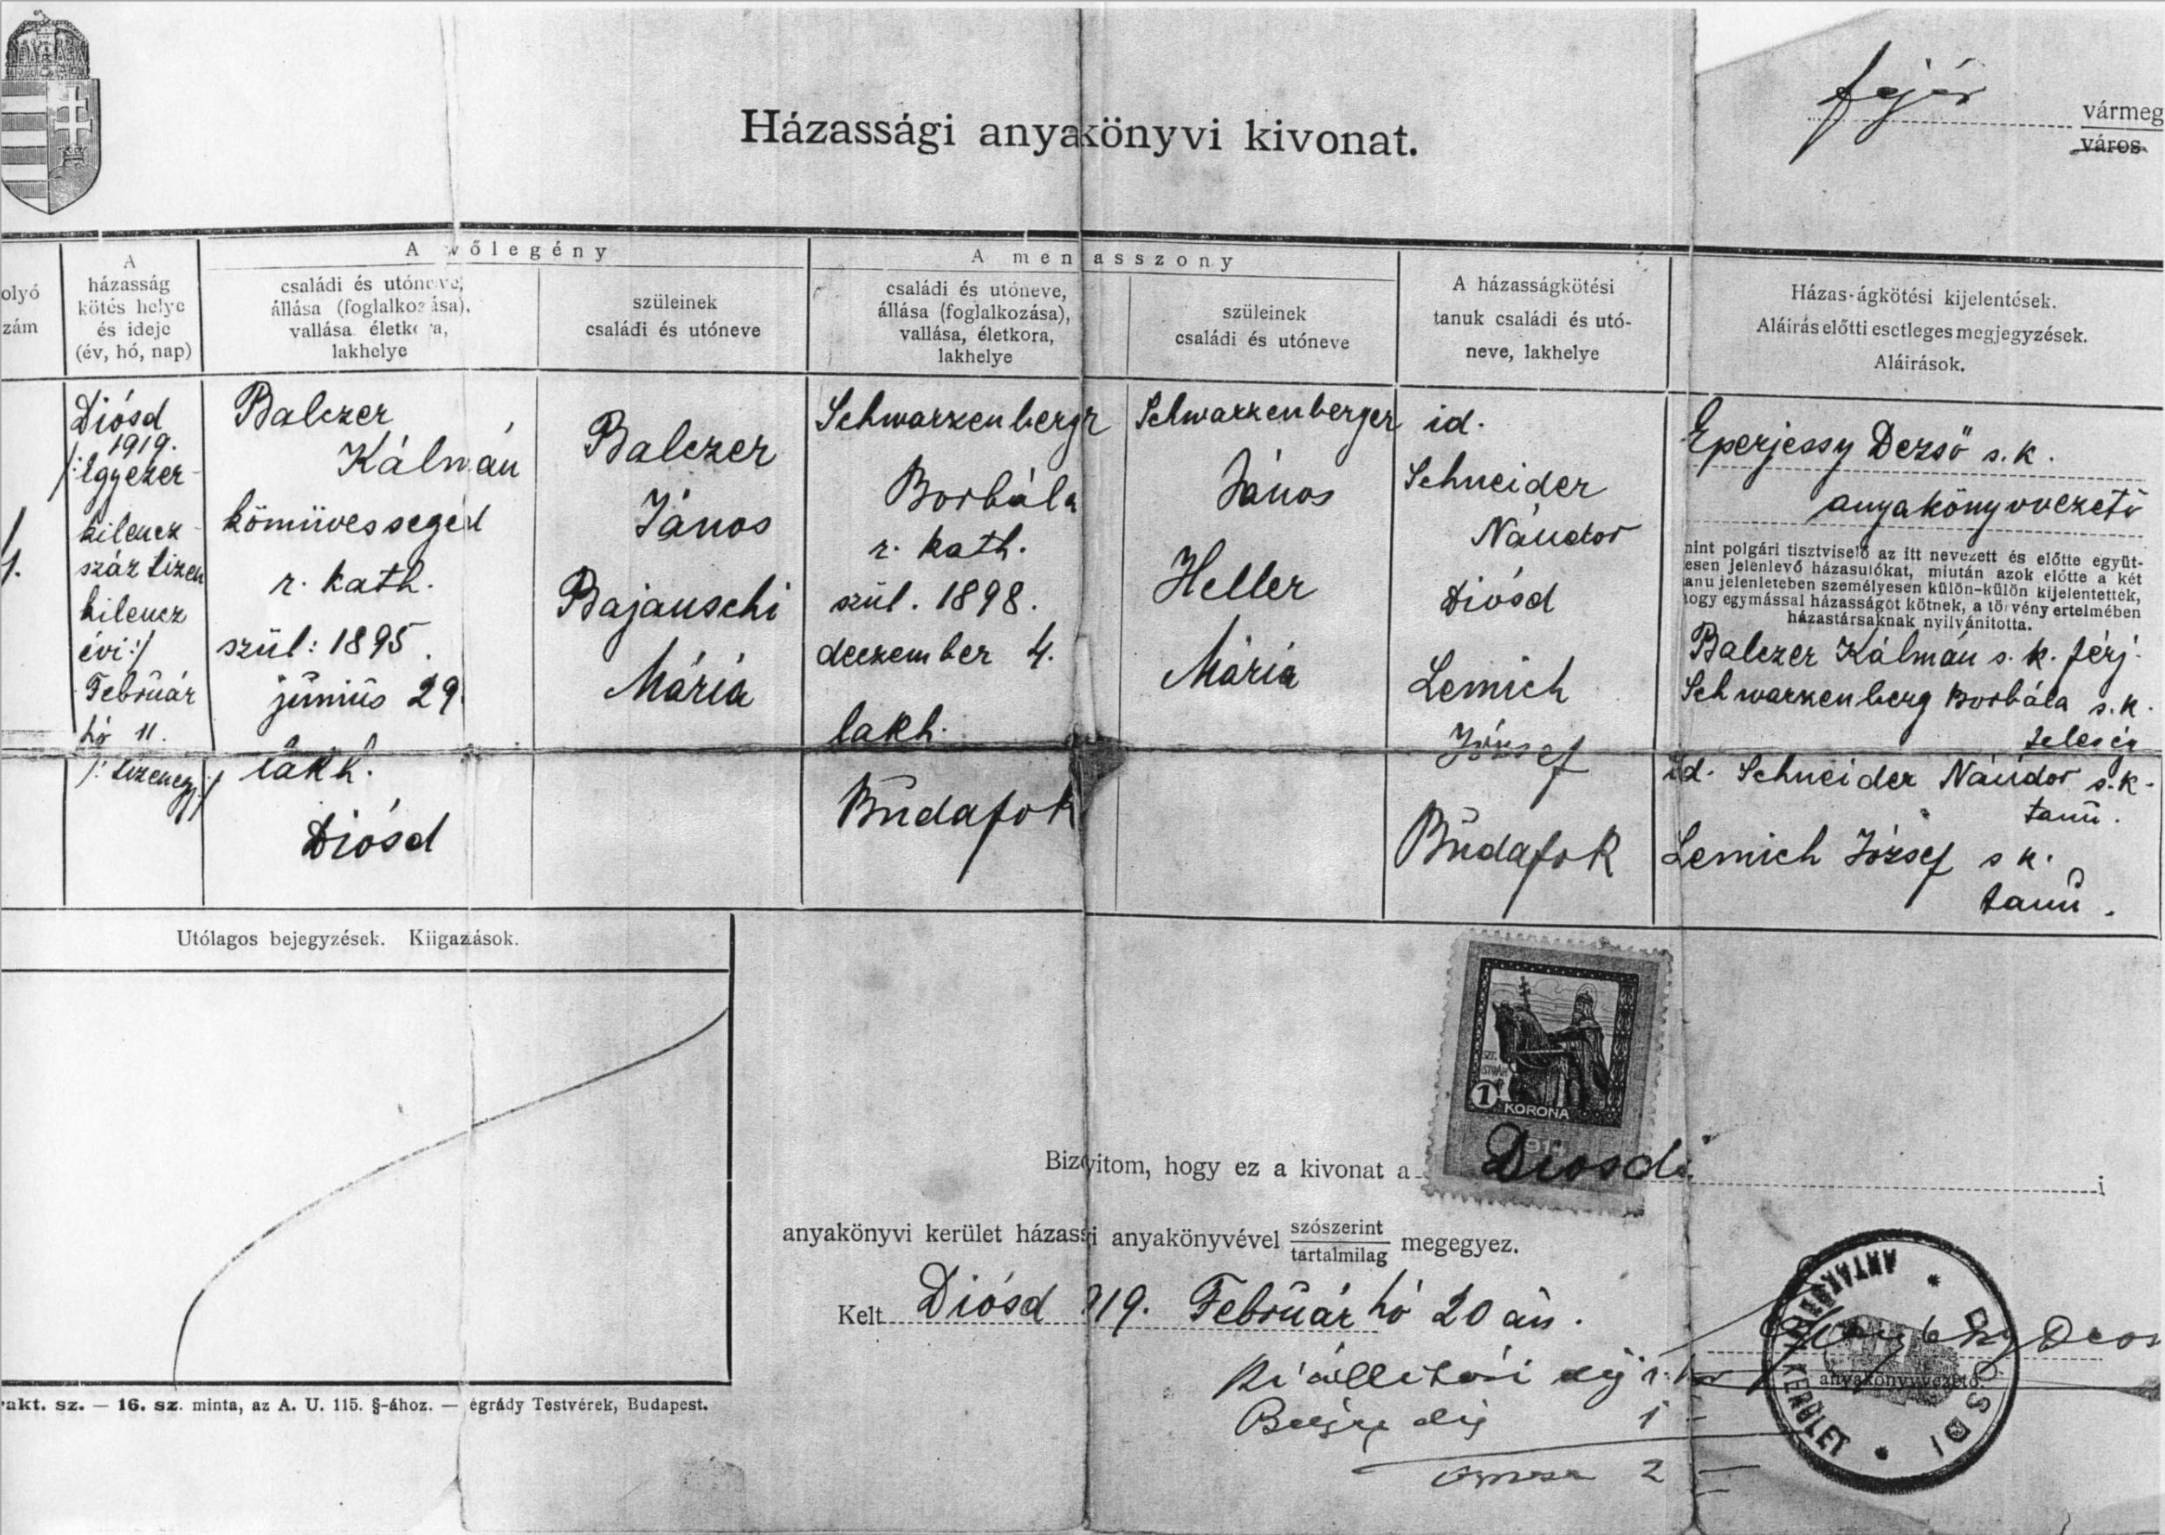 Fejér
vármeg
város
Házassági anyakönyvi kivonat.
olyó
zám
A
házasság
kötés helye
és ideje
(év, hó, nap)
A vőlegény
családi és utóneve,
állása (foglalkozása),
vallása életkora,
lakhelye
szüleinek
családi és utóneve
A menyasszony
családi és utóneve,
állása (foglalkozása),
vallása, életkora,
lakhelye
szüleinek
családi és utóneve
A házasságkötési
tanuk családi és utó-
neve, lakhelye
Házas-ágkötési kijelentések.
Aláírás előtti esetleges megjegyzések.
Aláírások.
Diósd
1919.
/:Egyezer-
kilencz-
száz tizen
kilencz
évi:/
Február
hó 11.
/:tizenegy:/
Balczer
Kálmán
kömüvessegéd
r. kath.
szül: 1895.
június 29.
lakh.
Diósd
Balczer
János
Bajauschi
Mária
Schwarzenbergr
Borbála
r. kath.
szül. 1898.
deczember 4.
lakh.
Budafok
Schwarzenberger
János
Heller
Mária
id.
Schneider
Nándor
Diósd
Lemich
József
Budafok
Eperjessy Dezső s. k.
anyakönyvvezető
mint polgári tisztviselő az itt nevezett és előtte együt-
esen jelenlevő házasulókat, miután azok előtte a két
anu jelenleteben személyesen külön-külön kijelentették,
hogy egymással házasságot kötnek, a törvény ertelmében
házastársaknak nyilvánitotta.
Balczer Kálmán s. k. férj.
Schwarzenberg Borbála s. k.
feleség
id. Schneider Nándor s. k.
tanu.
Lemich József s k.
tanu.
Utólagos bejegyzések. Kiigazások.
SZT.
ISTVÁN
1
KORONA
Bizonyitom, hogy ez a kivonat a Diosdi i
anyakönyvi kerület házassi anyakönyvével szószerint
tartalmilag megegyez.
Kelt Diósd 919. Február hó 20 án.
Kiállitási díj 1.
díj 1 –
össz 2 –
anyakönyvvezető
DIÓSDI * ANYAKÖNYVI KERÜLET *
rakt. sz. — 16. sz. minta, az A. U. 115. §-ához. — égrády Testvérek, Budapest.